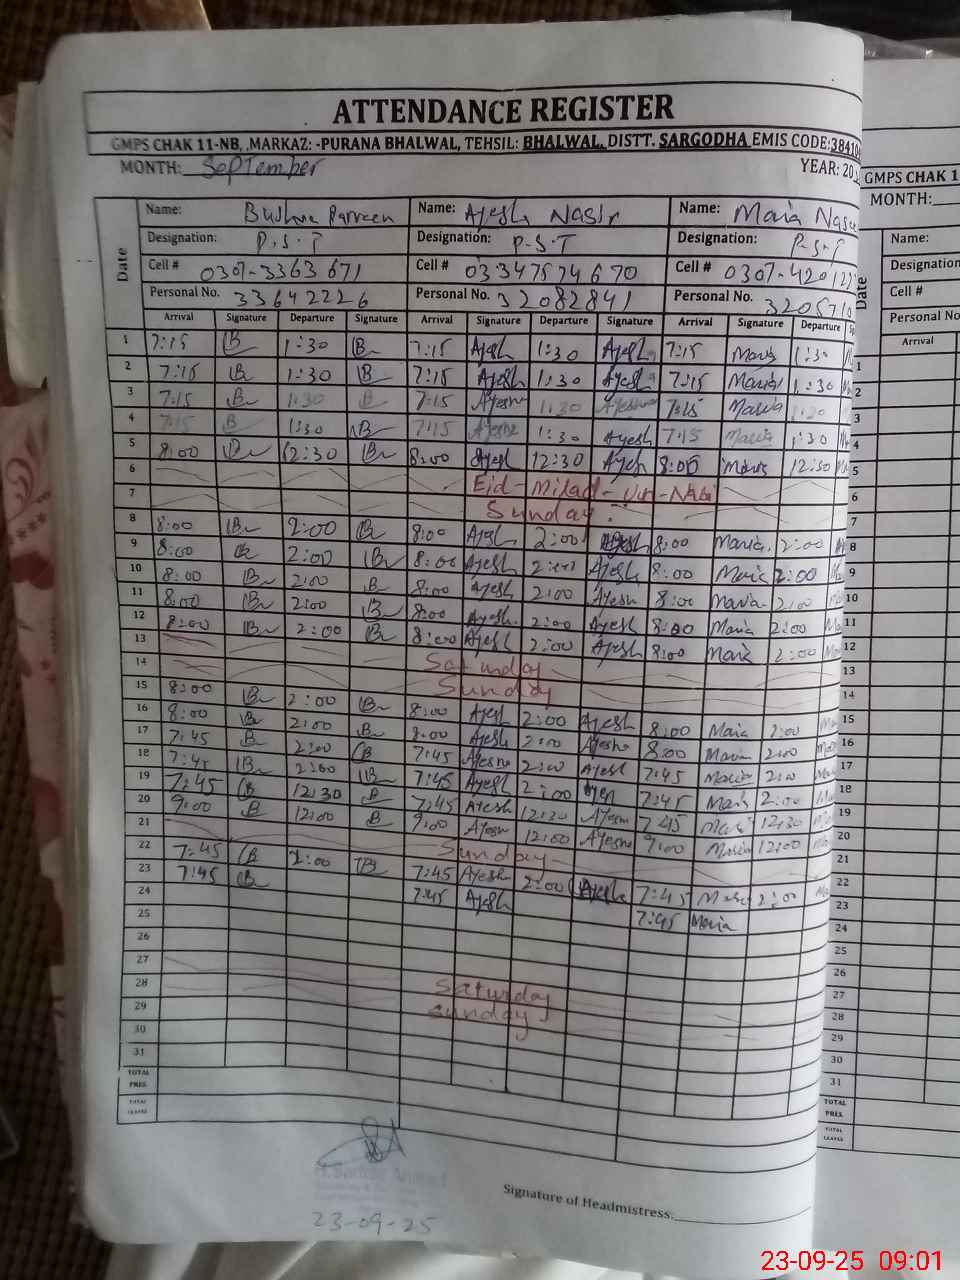 ATTENDANCE REGISTER
GMPS CHAK 11-NB, ,MARKAZ: -PURANA BHALWAL, TEHSIL: BHALWAL, DISTT. SARGODHA EMIS CODE:38410
MONTH: September YEAR: 20
Name: Bushra Parveen Name: Ayesh Nasir Name: Maria
Designation: P.S.T Designation: P-S-T Designation: P-S-T
Cell # 0307-3363671 Cell # 03347574670 Cell # 0307-420
Personal No. 33642226 Personal No. 32082841 Personal No. 320571
Date Arrival Signature Departure Signature Arrival Signature Departure Signature Arrival Signature Departure
1 7:15 B 1:30 B 7:15 Ayesh 1:30 Ayesh 7:15 Maria 1:30
2 7:15 B 1:30 B 7:15 Ayesh 1:30 Ayesh 7:15 Maria 1:30
3 7:15 B 1:30 B 7:15 Ayesha 1:30 Ayesha 7:15 Maria 1:30
4 7:15 B 1:30 B 7:15 Ayesha 1:30 Ayesh 7:15 Maria 1:30
5 8:00 B 12:30 B 8:00 Ayesh 12:30 Ayesh 8:00 Maria 12:30
6 Eid-Milad-Un-Nabi
7 Sunday
8 8:00 B 2:00 B 8:00 Ayesh 2:00 Ayesh 8:00 Maria 2:00
9 8:00 B 2:00 B 8:00 Ayesh 2:00 Ayesh 8:00 Maria 2:00
10 8:00 B 2:00 B 8:00 Ayesh 2:00 Ayesh 8:00 Maria 2:00
11 8:00 B 2:00 B 8:00 Ayesh 2:00 Ayesh 8:00 Maria 2:00
12 8:00 B 2:00 B 8:00 Ayesh 2:00 Ayesh 8:00 Maria 2:00
13 Saturday
14 Sunday
15 8:00 B 2:00 B 8:00 Ayesh 2:00 Ayesh 8:00 Maria 2:00
16 8:00 B 2:00 B 8:00 Ayesh 2:00 Ayesha 8:00 Maria 2:00
17 7:45 B 2:00 B 7:45 Ayesha 2:00 Ayesh 7:45 Maria 2:00
18 7:45 B 2:00 B 7:45 Ayesh 2:00 Ayesh 7:45 Maria 2:00
19 7:45 B 12:30 B 7:45 Ayesh 12:30 Ayesha 7:45 Maria 12:30
20 9:00 B 12:00 B 9:00 Ayesh 12:00 Ayesha 9:00 Maria 12:00
21 Sunday
22 7:45 B 2:00 B 7:45 Ayesh 2:00 Ayesha 7:45 Maria 2:00
23 7:45 B 7:45 Ayesh 7:45 Maria
24
25
26
27 Saturday
28 Sunday
29
30
31
TOTAL PRES.
TOTAL LEAVES
23-09-25
Signature of Headmistress:
GMPS CHAK 1
MONTH:
Date
Name:
Designation
Cell #
Personal No
Arrival
1
2
3
4
5
6
7
8
9
10
11
12
13
14
15
16
17
18
19
20
21
22
23
24
25
26
27
28
29
30
31
TOTAL PRES.
TOTAL LEAVES
23-09-25 09:01